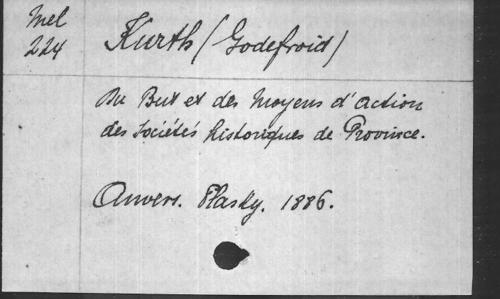 Mel
224
Kurth (Godefroid)
Du But et des Moyens d'action
des Sociétés historiques de Province.
Anvers. Plasky. 1886.